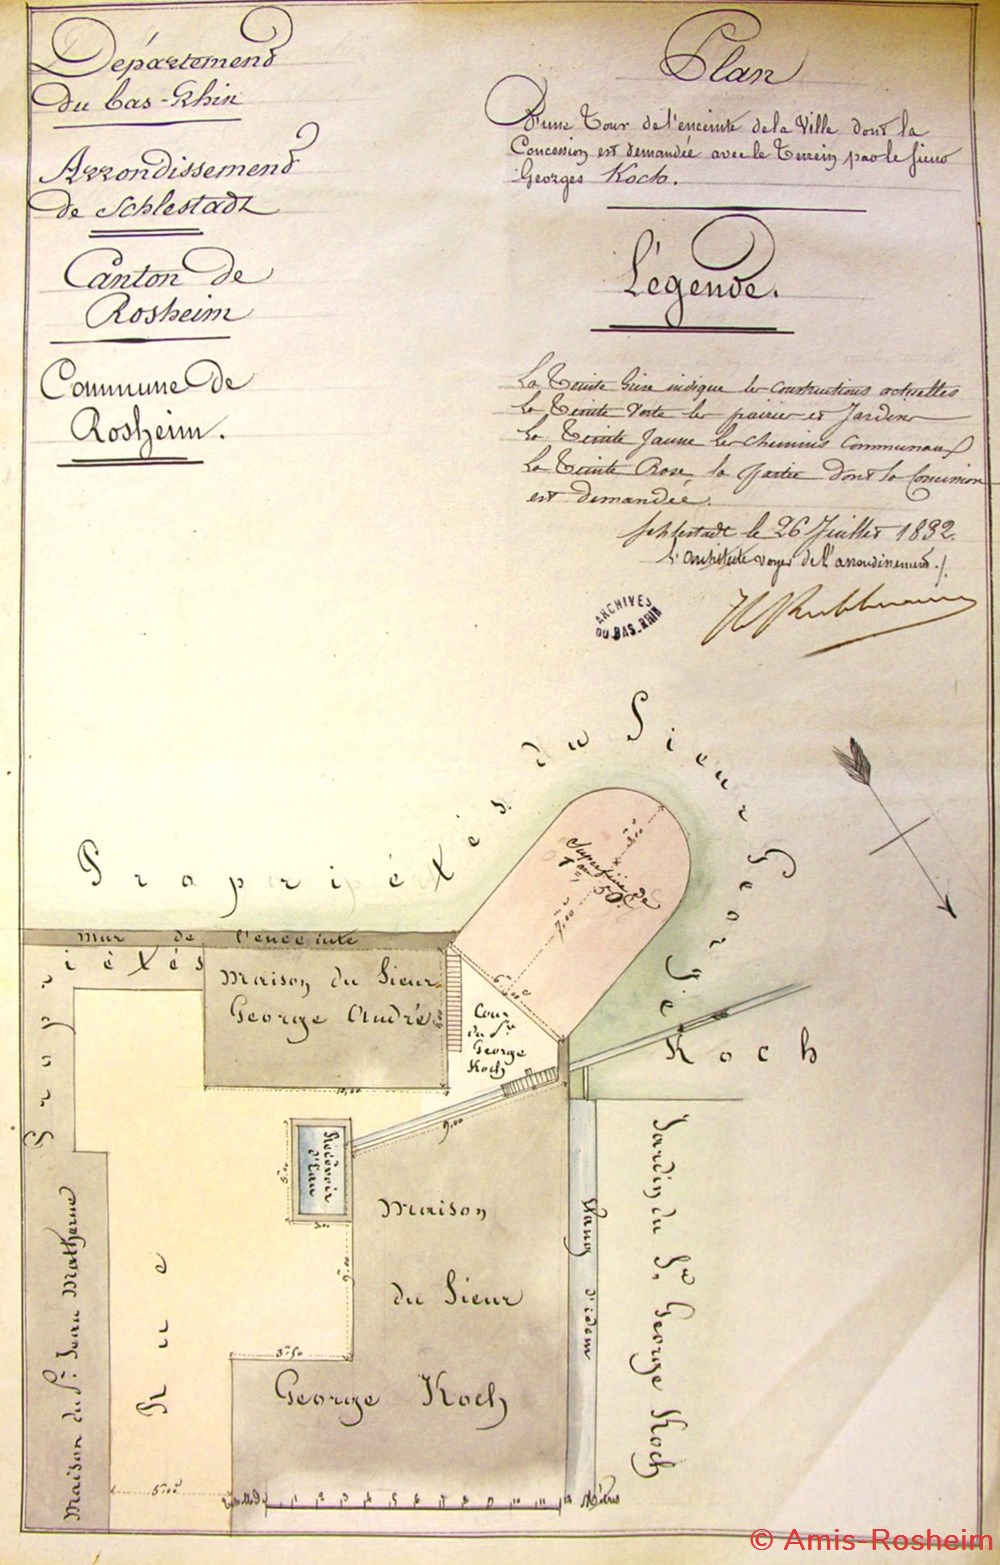 Département
du bas-Rhin
Arrondissement
de Schlestadt
Canton de
Rosheim
Commune de
Rosheim.
Plan
D'une Tour de l'enceinte de la Ville dont la
Concession est demandée avec le Terrein par le Sieur
Georges Koch.
Légende.
La Teinte Grise indique les constructions actuelles
La Teinte Verte les prairies et Jardins
La Teinte Jaune les chemins Communaux
La Teinte Rose la partie dont la Concession
est demandée.
Schlestadt le 26 Juillet 1832.
L'architecte voyer de l'arrondissement
ARCHIVES
DU BAS-RHIN
Propriétés du Sieur George Koch
Superficie de
50
7,00
mur de l'enceinte
Propriétés
Maison du Sieur
George André
10,00
Cour
du Sr
George
Koch
9,00
Réservoir
d'Eau
Maison
du Sieur
George Koch
Etang d'idem
Jardin du Sr. George Koch
Maison du Sr. Jean Matherne
Rue
5,00
1 2 3 4 5 6 7 8 9 10 11 12 Mètres
© Amis-Rosheim